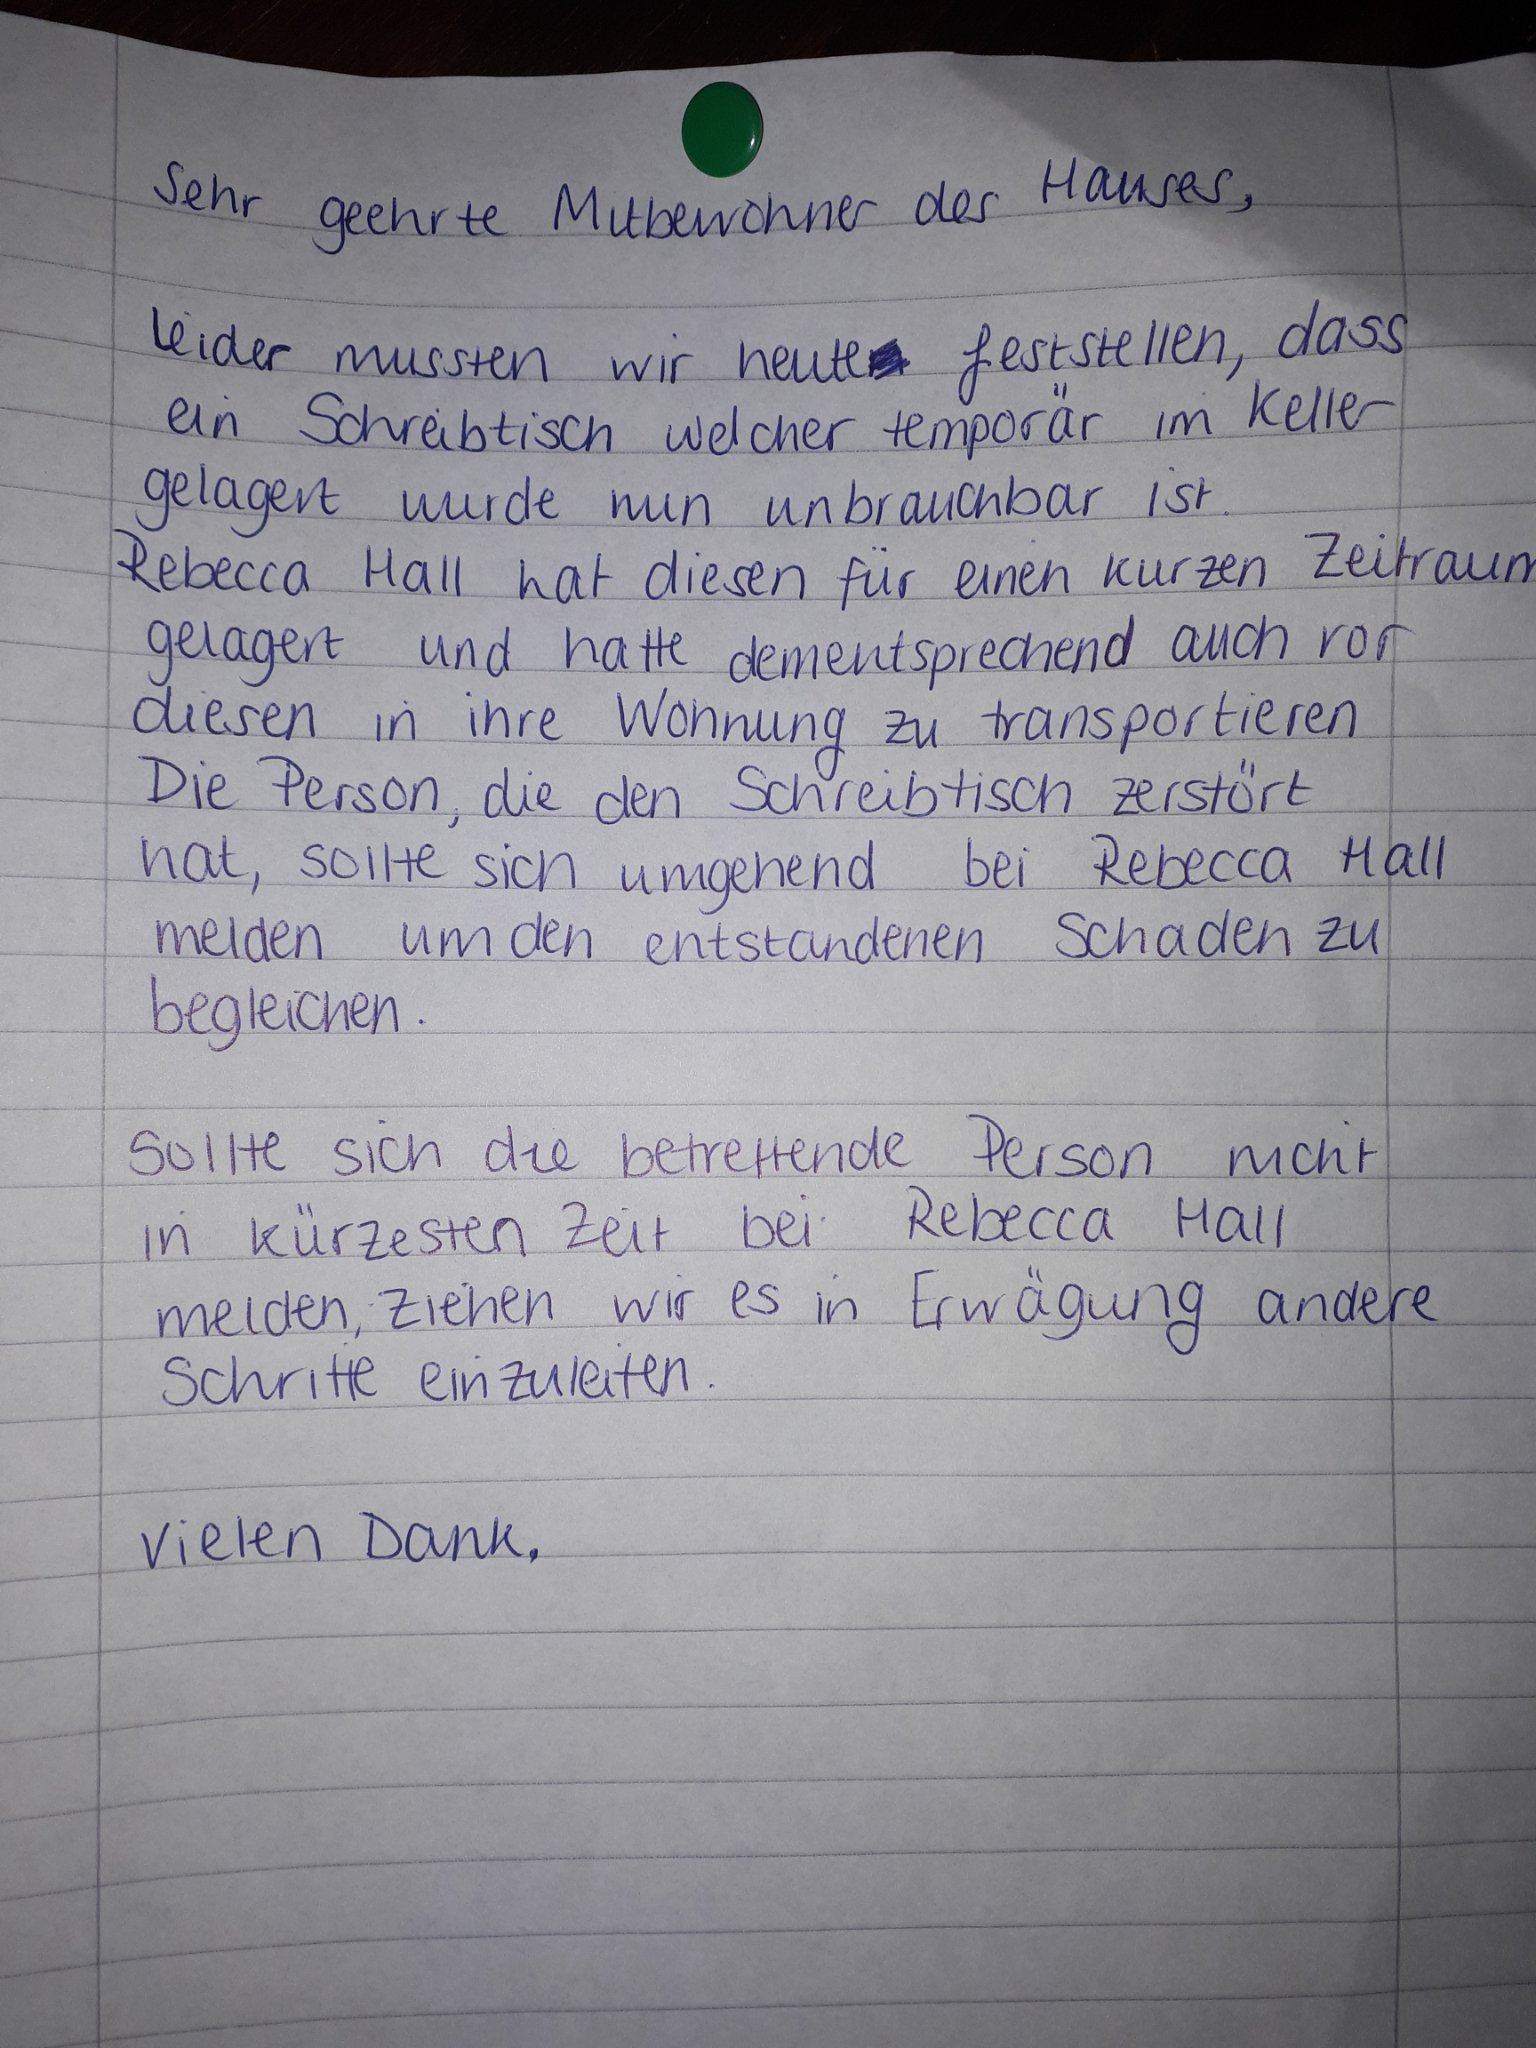 Sehr geehrte Mitbewohner des Hauses,
Leider mussten wir heute feststellen, dass
ein Schreibtisch welcher temporär im Keller
gelagert wurde nun unbrauchbar ist.
Rebecca Hall hat diesen für einen kurzen Zeitraum
gelagert und hatte dementsprechend auch vor
diesen in ihre Wohnung zu transportieren
Die Person, die den Schreibtisch zerstört
hat, sollte sich umgehend bei Rebecca Hall
melden um den entstandenen Schaden zu
begleichen.
Sollte sich die betreffende Person nicht
in kürzesten Zeit bei Rebecca Hall
melden, ziehen wir es in Erwägung andere
Schritte einzuleiten.
Vielen Dank.